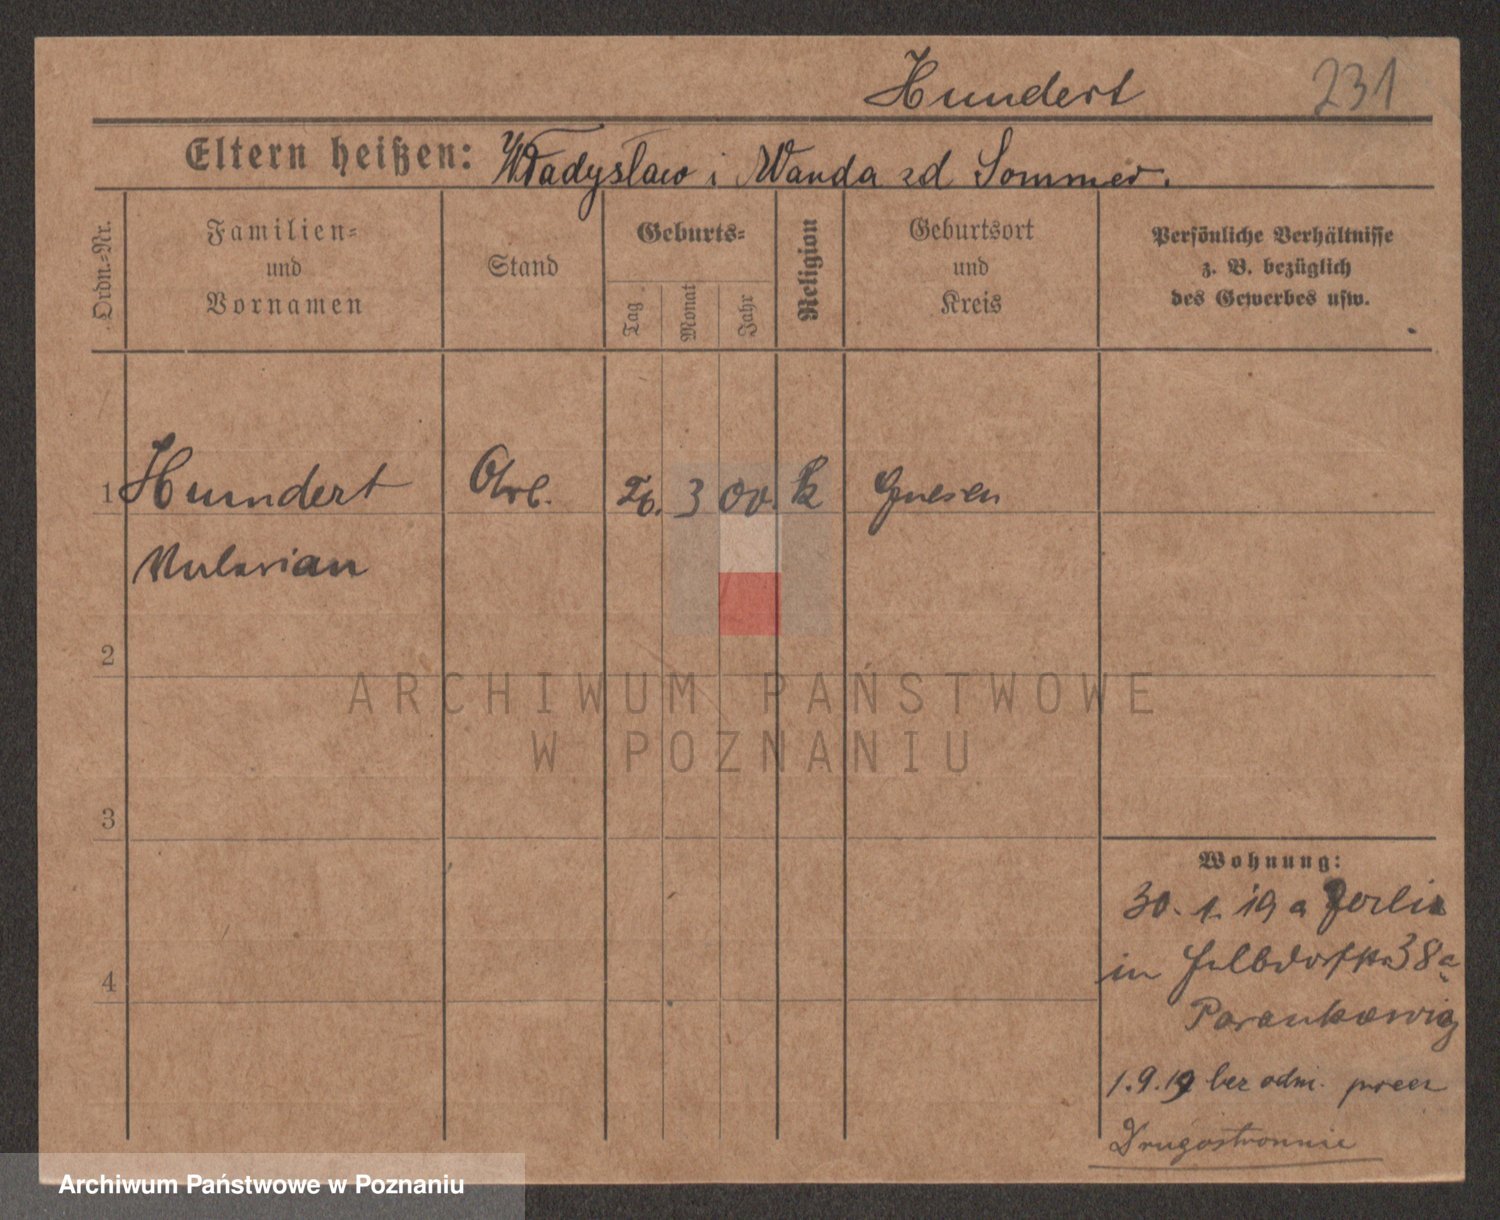 Hundert 231
Eltern heißen: Władysław i Wanda zd Sommer.
Ordn.-Nr.
Familien-
und
Vornamen
Stand
Geburts-
Tag
Monat
Jahr
Religion
Geburtsort
und
Kreis
Persönliche Verhältnisse
z. B. bezüglich
des Gewerbes usw.
1 Hundert Arb. 26. 3 00. k Gnesen
2
3
4
Wohnung:
30. 1. 19 a Berlin
in 38a
1.9.19 bez adm. przez
Drugostronnie
ARCHIWUM PAŃSTWOWE
W POZNANIU
Archiwum Państwowe w Poznaniu